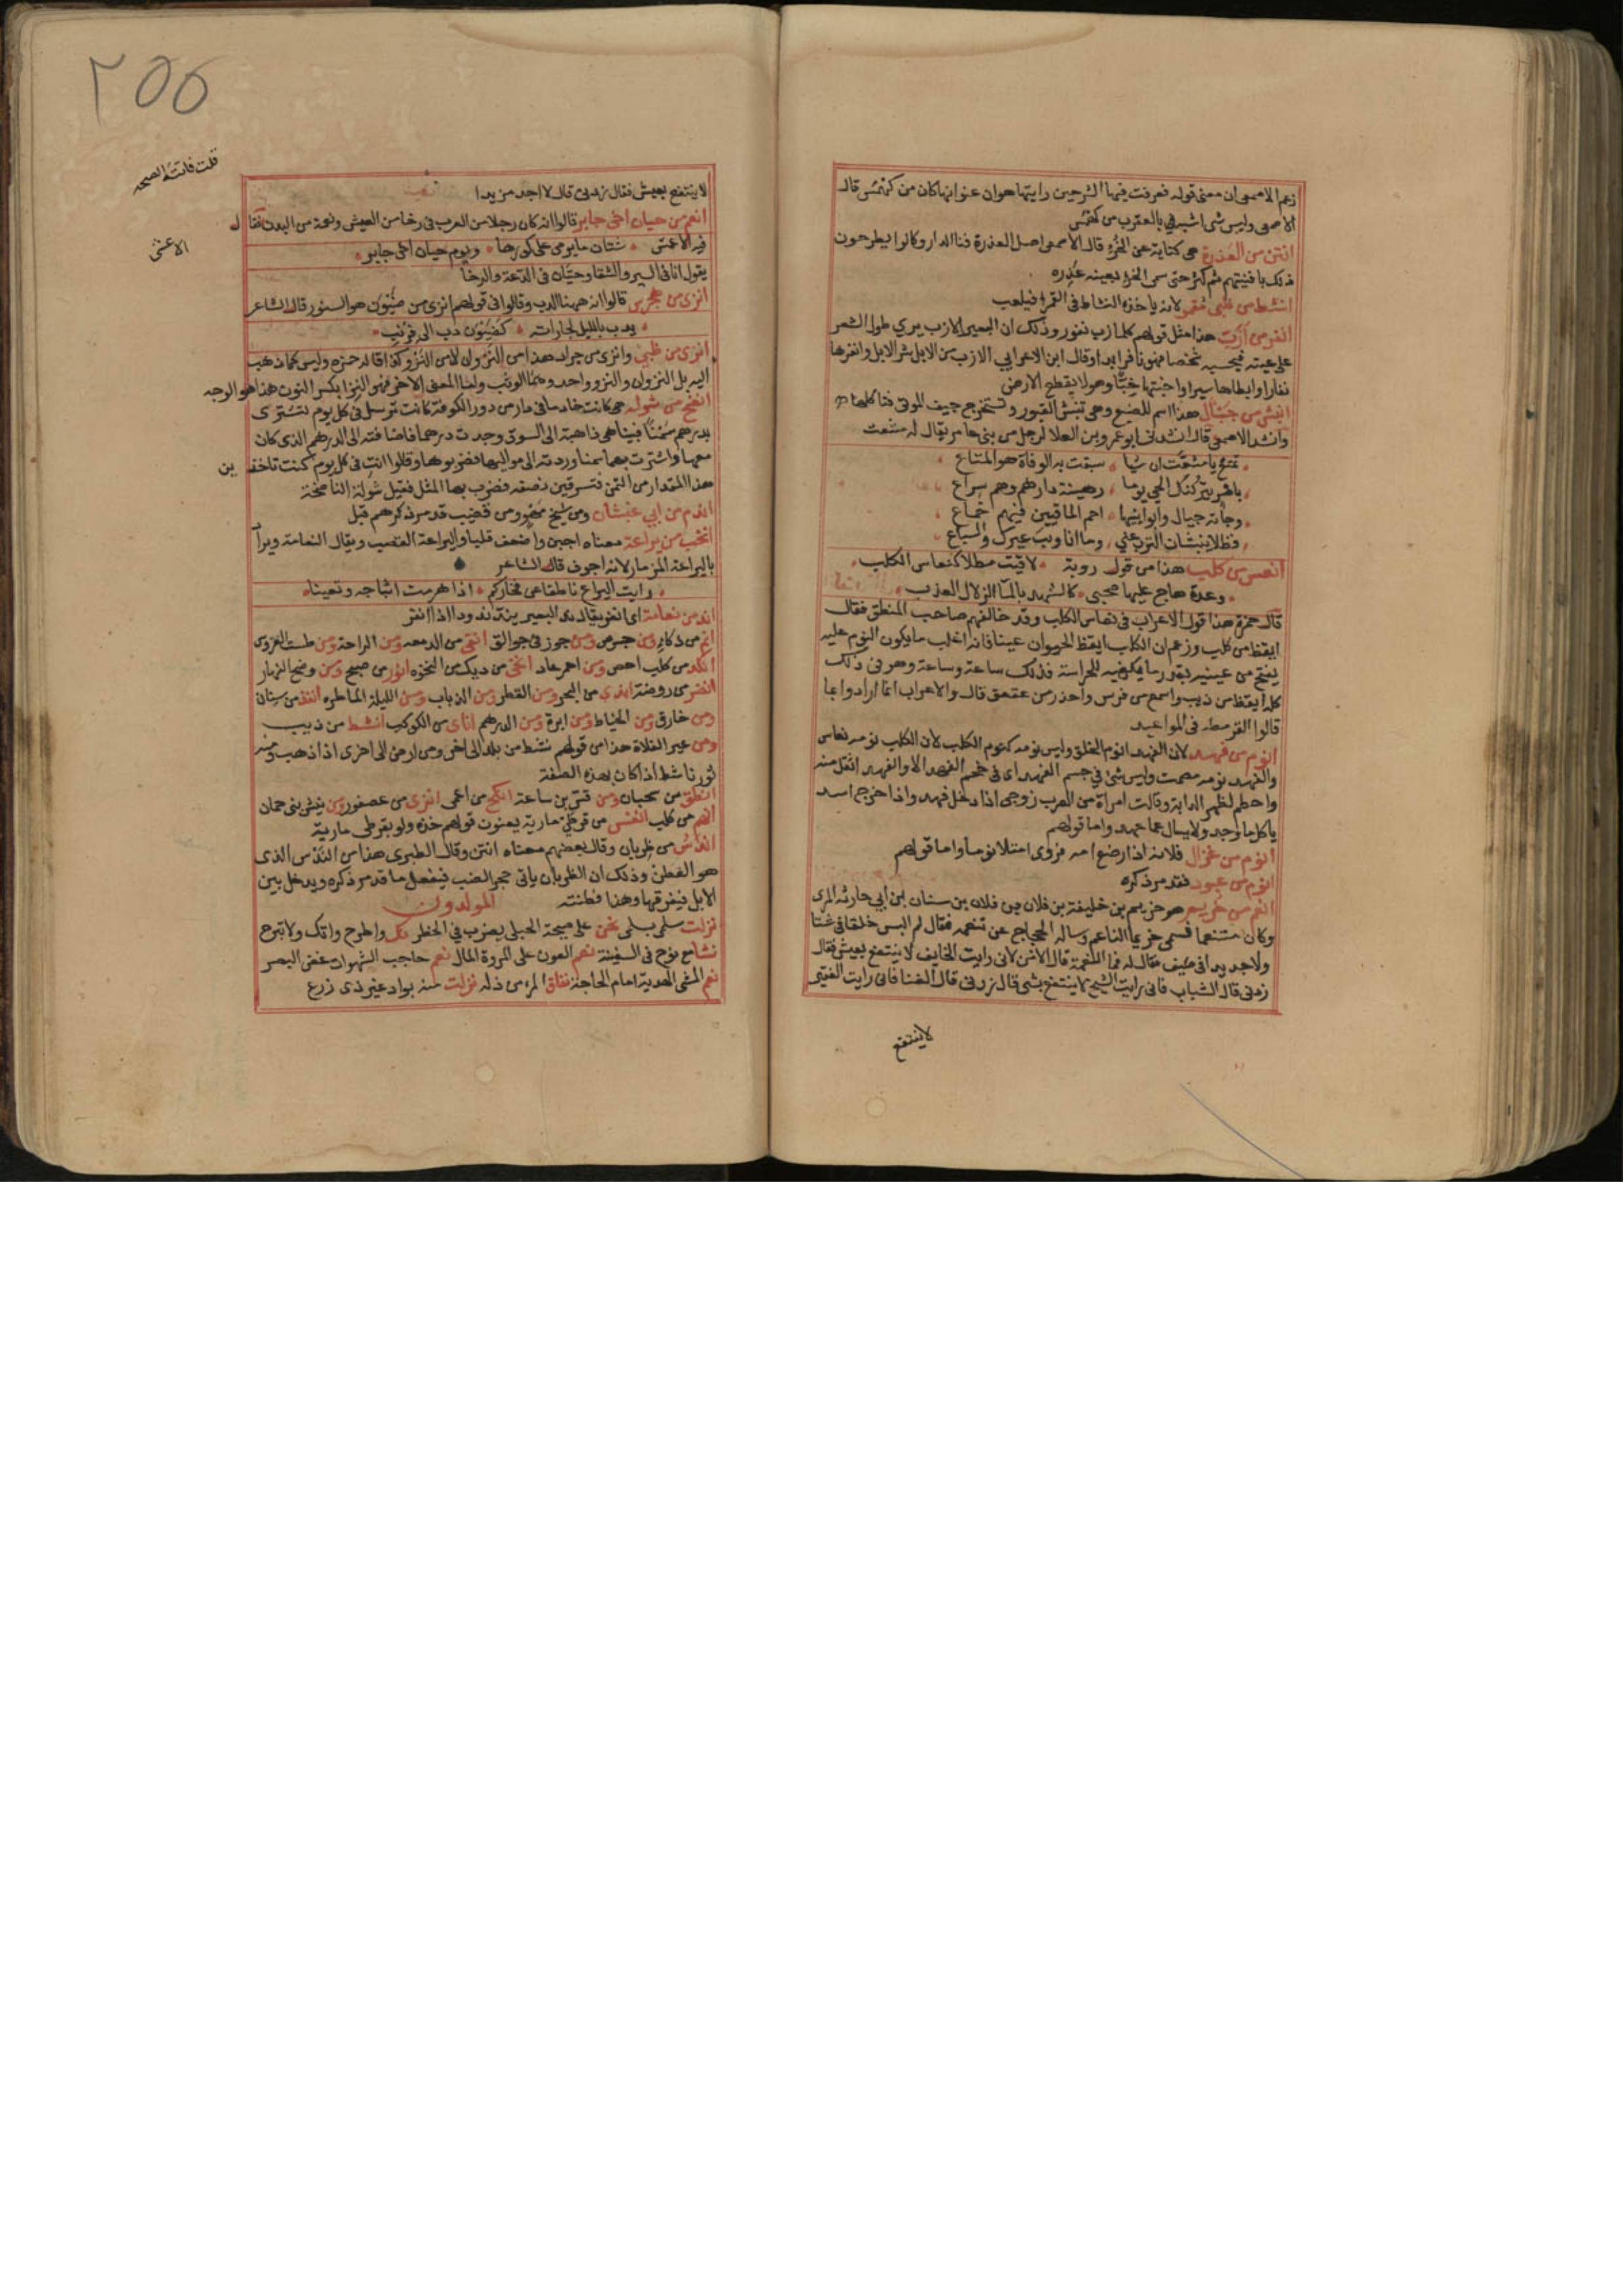 زعم الاصمعي ان معنى قوله فعرفت فيها الشر حين رايتها هوان عنوانها كان من كهمس قال
الاصمعي وليس شي اشبه في بالعقرب من كهمس
انتن من العذرة هي كناية عن الخرؤ قال الاصمعي اصل العذرة فنا الدار وكانوا يطرحون
ذلك بافنيتهم ثم كثر حتى سمى الخرؤ بعينه عذره
انشط من ظبي مقمر لانه ياخذه النشاط في القمرا فيلعب
انفر من ازب هذا مثل قولهم كل ازب نفور وذلك ان البعير الازب يري طول الشعر
على عينه فيحسبه شخصا فهو نافر ابدا وقال ابن الاعرابي الازب من الابل شر الابل وانفرها
نفارا وابطاها سيرا واخبثها خبثا وهو لا يقطع الارض
انبش من جيال هذا اسم للضبع وهي تنبش القبور وتستخرج جيف الموتى فتاكلها
وانشد الاصمعي قال انشدني ابو عمرو بن العلا لرجل من بني عامر يقال له مشعث
تمتع يا مشعث ان شيا سبقت به الوفاة هو المتاع
باصر يتركنك الحي يوما رهينة دارهم وهم سراع
وجات جيال وابو ابيها احم الماقيين فيهم خماع
فظلا ينبشان الترب عني وما انا ويب غيرك والسباع
انعس من كلب هذا من قول روبة لاقيت مطلا كنعاس الكلب
وعدة هاج عليها صحبي كالشهد بالماء الزلال العذب
قال حمزة هذا قول الاعراب في نعاس الكلب وقد خالفهم صاحب المنطق فقال
ايقظ من كلب وزعم ان الكلب ايقظ الحيوان عينا فانه اغلب ما يكون النوم عليه
يفتح من عينيه بقدر ما يكفيه للحراسة فذلك ساعة وساعة وهو في ذلك
كله ايقظ من ذيب واسمع من فرس واحذر من عقعق قال والاعراب انما ارادوا بما
قالوا القرمطه في المواعيد
انوم من فهد لان الفهد انوم الخلق وليس نومه كنوم الكلب لان الكلب نومه نعاس
والفهد نومه مصمت وليس شي في جسم الفهد اي في حجم الفهد الا والفهد اثقل منه
واحطم لظهر الدابة وقالت امراة من العرب زوجي اذا دخل فهد واذا خرج اسد
ياكل ما وجد ولا يسال عما عهد واما قولهم
انوم من غزال فلانه اذا رضع امه فروى امتلا نوما واما قولهم
انوم من عبود فقد مر ذكره
انعم من خريم هو خريم بن خليفة بن فلان بن فلان بن سنان بن ابي حارثه المرى
وكان متنعما فسمى خريما الناعم وساله الحجاج عن تنعمه فقال لم البس خلقا في شتا
ولا جديدا في صيف فقال له فما النعمة قال الامن لاني رايت الخايف لا ينتفع بعيش فقال
زدني قال الشباب فاني رايت الشيخ لا ينتفع بشي قال زدني قال الغنا فاني رايت الفقير
لا ينتفع
٢٥٥
لا ينتفع بعيش فقال زدني قال لا اجد مزيدا
قلت فاتته الصحه
انعم من حيان اخي جابر قالوا انه كان رجلا من العرب في رخا من العيش ونعمة من البدن فقال
الاعشى
فيه الاعشى شتان ما يومي على كورها ويوم حيان اخي جابر
يقول انا في السير والشقا وحيان في الدعة والرخا
انزى من هجرس قالوا انه ههنا الدب وقالوا في قولهم انزى من ضيون هو السنور قال الشاعر
يدب بالليل لجاراته كضيون دب الى قرنب
انزى من ظبي وانزى من جراد هذا من النزوان لا من النزو كذا قاله حمزه وليس كما ذهب
اليه بل النزوان والنزو واحد وهما الوثب واما المعنى الاخر فهو النزا بكسر النون هذا هو الوجه
انفح من شوله هي كانت خادما في دار من دور الكوفة كانت ترسل في كل يوم تشترى
بدرهم سمنا فبينا هي ذاهبة الى السوق وجدت درهما فاضافته الى الدرهم الذى كان
معها واشترت بهما سمنا وردته الى مواليها فضربوها وقالوا انتِ في كل يوم كنت تاخذين
هذا المقدار من الثمن فتسرقين نصفه فضرب بها المثل فقيل شولة الناصحة
اندم من ابي غبشان ومن شيخ مهو ومن قضيب قد مر ذكرهم قبل
انخب من يراعة معناه اجبن واضعف قلبا واليراعة القصب ويقال النعامة ويراد
باليراعة المزمار لانه اجوف قال الشاعر
رايت اليراع ناطقا عن فخاركم اذا هرمت اثباجه وتعينا
اند من نعامة اى انفر يقال ند البعير يند ندودا اذا نفر
انم من ذكاء ومن جرس ومن جوز في جوالق انقى من الدمعه ومن الراحة ومن طست العروس
انكد من كلب احص ومن احمر عاد انخى من ديك من النخوه انور من صبح ومن وضح النهار
انضر من روضة اندى من البحر ومن القطر ومن الذباب ومن الليلة الماطره انفذ من سنان
ومن خارق ومن الخياط ومن ابرة ومن الدرهم اناى من الكوكب انشط من ذيب
ومن عير الفلاة هذا من قولهم نشط من بلد الى اخر ومن ارض الى اخرى اذا ذهب ومنه
ثور ناشط اذا كان بهذه الصفة
انطق من سحبان ومن قس بن ساعدة انكح من اعمى انزى من عصفور ومن تيس بني حمان
انهم من كلب انفس من قرطي مارية يعنون قولهم خذه ولو بقرطي مارية
اندس من ظربان وقال بعضهم معناه انتن وقال الطبرى هذا من الندس الذى
هو الفطن وذلك ان الظربان ياتى جحر الضب فيفعل ما قد مر ذكره ويدخل بين
الابل فيفرقها وهذا فطنته المولدون
نزلت سلمى بسلمى نحن على صيحة الحبلى يضرب في الخطر نك واطرح واتك ولا تبرح
نشا مع نوح في السفينة نعم العون على المروة المال نعم حاجب الشهوات غض البصر
نعم المشي الهدية امام الحاجة نفاق المرء من ذله نزلت منه بواد غير ذى زرع